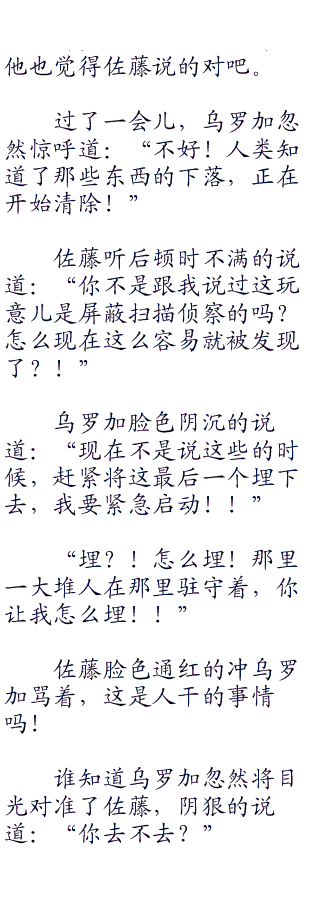 他也觉得佐藤说的对吧。
过了一会儿，乌罗加忽
然惊呼道：“不好！人类知
道了那些东西的下落，正在
开始清除！”
佐藤听后顿时不满的说
道：“你不是跟我说过这玩
意儿是屏蔽扫描侦察的吗？
怎么现在这么容易就被发现
了？！”
乌罗加脸色阴沉的说
道：“现在不是说这些的时
候，赶紧将这最后一个埋下
去，我要紧急启动！！”
“埋？！怎么埋！那里
一大堆人在那里驻守着，你
让我怎么埋！！”
佐藤脸色通红的冲乌罗
加骂着，这是人干的事情
吗！
谁知道乌罗加忽然将目
光对准了佐藤，阴狠的说
道：“你去不去？”